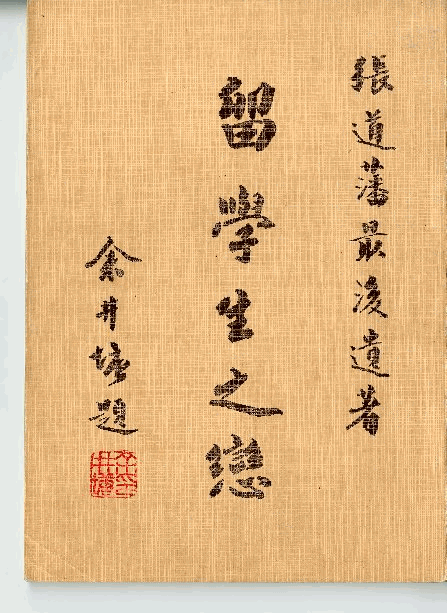 張道藩最後遺著
留學生之戀
余井塘題
余井塘